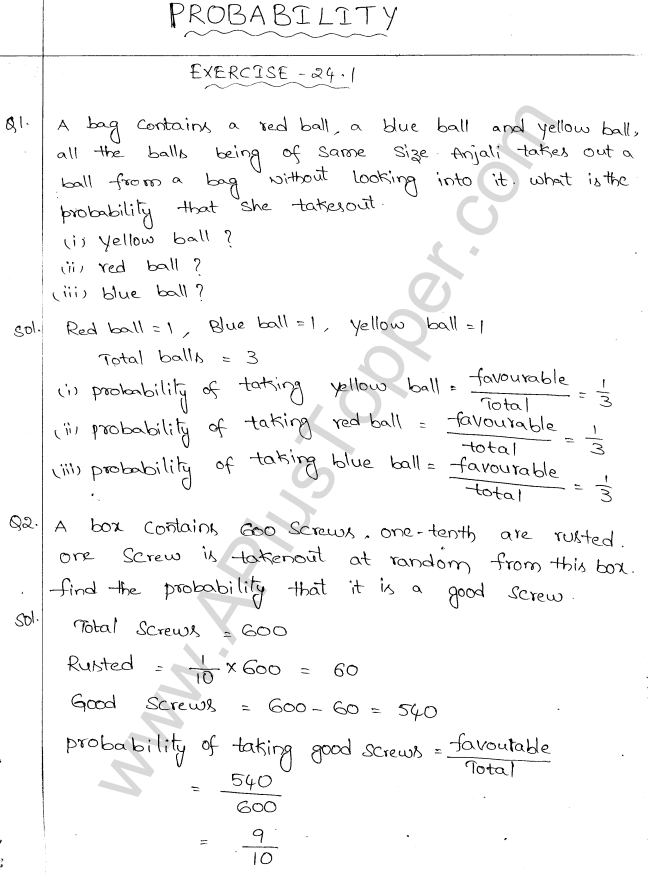 PROBABILITY
EXERCISE - 24.1
Q1. A bag contains a red ball, a blue ball and yellow ball,
all the balls being of same size. Anjali takes out a
ball from a bag without looking into it. what is the
probability that she takesout.
(i) yellow ball ?
(ii) red ball ?
(iii) blue ball ?
Sol. Red ball = 1, Blue ball = 1, yellow ball = 1
Total balls = 3
(i) probability of taking yellow ball = favourable/Total = 1/3
(ii) probability of taking red ball = favourable/total = 1/3
(iii) probability of taking blue ball = favourable/total = 1/3
Q2. A box contains 600 screws, one-tenth are rusted.
one screw is takenout at random from this box.
find the probability that it is a good screw.
Sol. Total screws = 600
Rusted = 1/10 × 600 = 60
Good screws = 600 - 60 = 540
probability of taking good screws = favourable/Total
= 540/600
= 9/10
www.APlusTopper.com